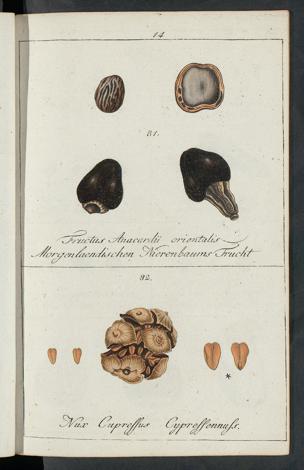 14
81.
Fructus Anacardii orientalis
Morgenlaendischen Nierenbaums Frucht
82.
*
Nux Cupressus Cypressennuss.